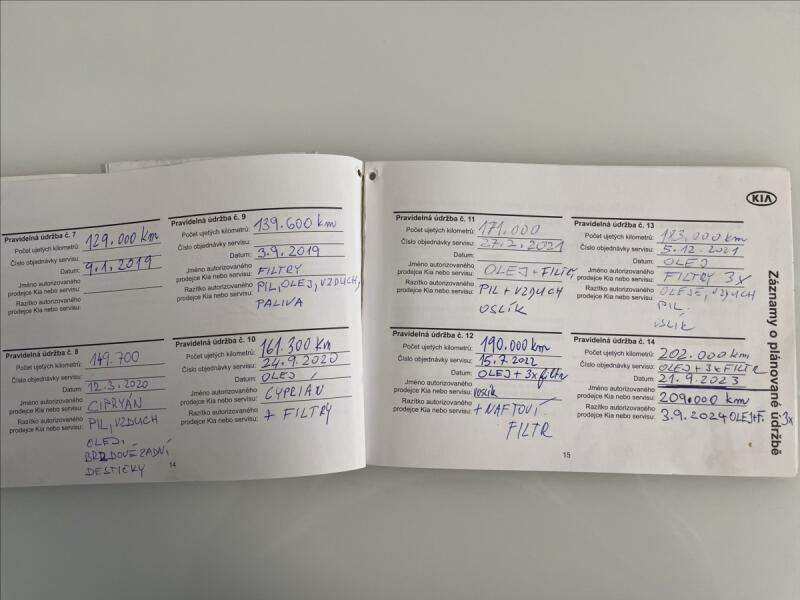 Pravidelná údržba č. 7
Počet ujetých kilometrů: 129.000 km
Číslo objednávky servisu:
Datum: 9.1.2019
Jméno autorizovaného
prodejce Kia nebo servisu:
Razítko autorizovaného
prodejce Kia nebo servisu:
Pravidelná údržba č. 8
Počet ujetých kilometrů: 149.700
Číslo objednávky servisu:
Datum: 12.3.2020
Jméno autorizovaného
prodejce Kia nebo servisu: CIPRYÁN
Razítko autorizovaného
prodejce Kia nebo servisu: PIL, VZDUCH
OLEJ,
BRZDOVÉ ZADNÍ
DESTIČKY
Pravidelná údržba č. 9
Počet ujetých kilometrů: 139.600 km
Číslo objednávky servisu:
Datum: 3.9.2019
Jméno autorizovaného
prodejce Kia nebo servisu: FILTRY
Razítko autorizovaného
prodejce Kia nebo servisu: PIL, OLEJ, VZDUCH,
PALIVA
Pravidelná údržba č. 10
Počet ujetých kilometrů: 161.300 km
Číslo objednávky servisu: 24.9.2020
Datum: OLEJ
Jméno autorizovaného
prodejce Kia nebo servisu: CYPRIÁN
Razítko autorizovaného
prodejce Kia nebo servisu: + FILTRY
14
Pravidelná údržba č. 11
Počet ujetých kilometrů: 171.000
Číslo objednávky servisu: 27.2.2021
Datum:
Jméno autorizovaného
prodejce Kia nebo servisu: OLEJ + FILTRY
Razítko autorizovaného
prodejce Kia nebo servisu: PIL + VZDUCH
OSLÍK
Pravidelná údržba č. 12
Počet ujetých kilometrů: 190.000 km
Číslo objednávky servisu: 15.7.2022
Datum: OLEJ + 3x filtr
Jméno autorizovaného
prodejce Kia nebo servisu:
Razítko autorizovaného
prodejce Kia nebo servisu: + NAFTOVÍ
FILTR
15
KIA
Pravidelná údržba č. 13
Počet ujetých kilometrů: 183,000 km
Číslo objednávky servisu: 5.12.2021
Datum: OLEJ
Jméno autorizovaného
prodejce Kia nebo servisu: FILTRY 3X
Razítko autorizovaného
prodejce Kia nebo servisu: OLEJE, VZDUCH
PIL.
Pravidelná údržba č. 14
Počet ujetých kilometrů: 202.000 km
Číslo objednávky servisu: OLEJ + 3x FILTR
Datum: 21.9.2023
Jméno autorizovaného
prodejce Kia nebo servisu: 209.000 km
Razítko autorizovaného
prodejce Kia nebo servisu: 3.9.2024 OLEJ+F. 3x
Záznamy o plánované údržbě